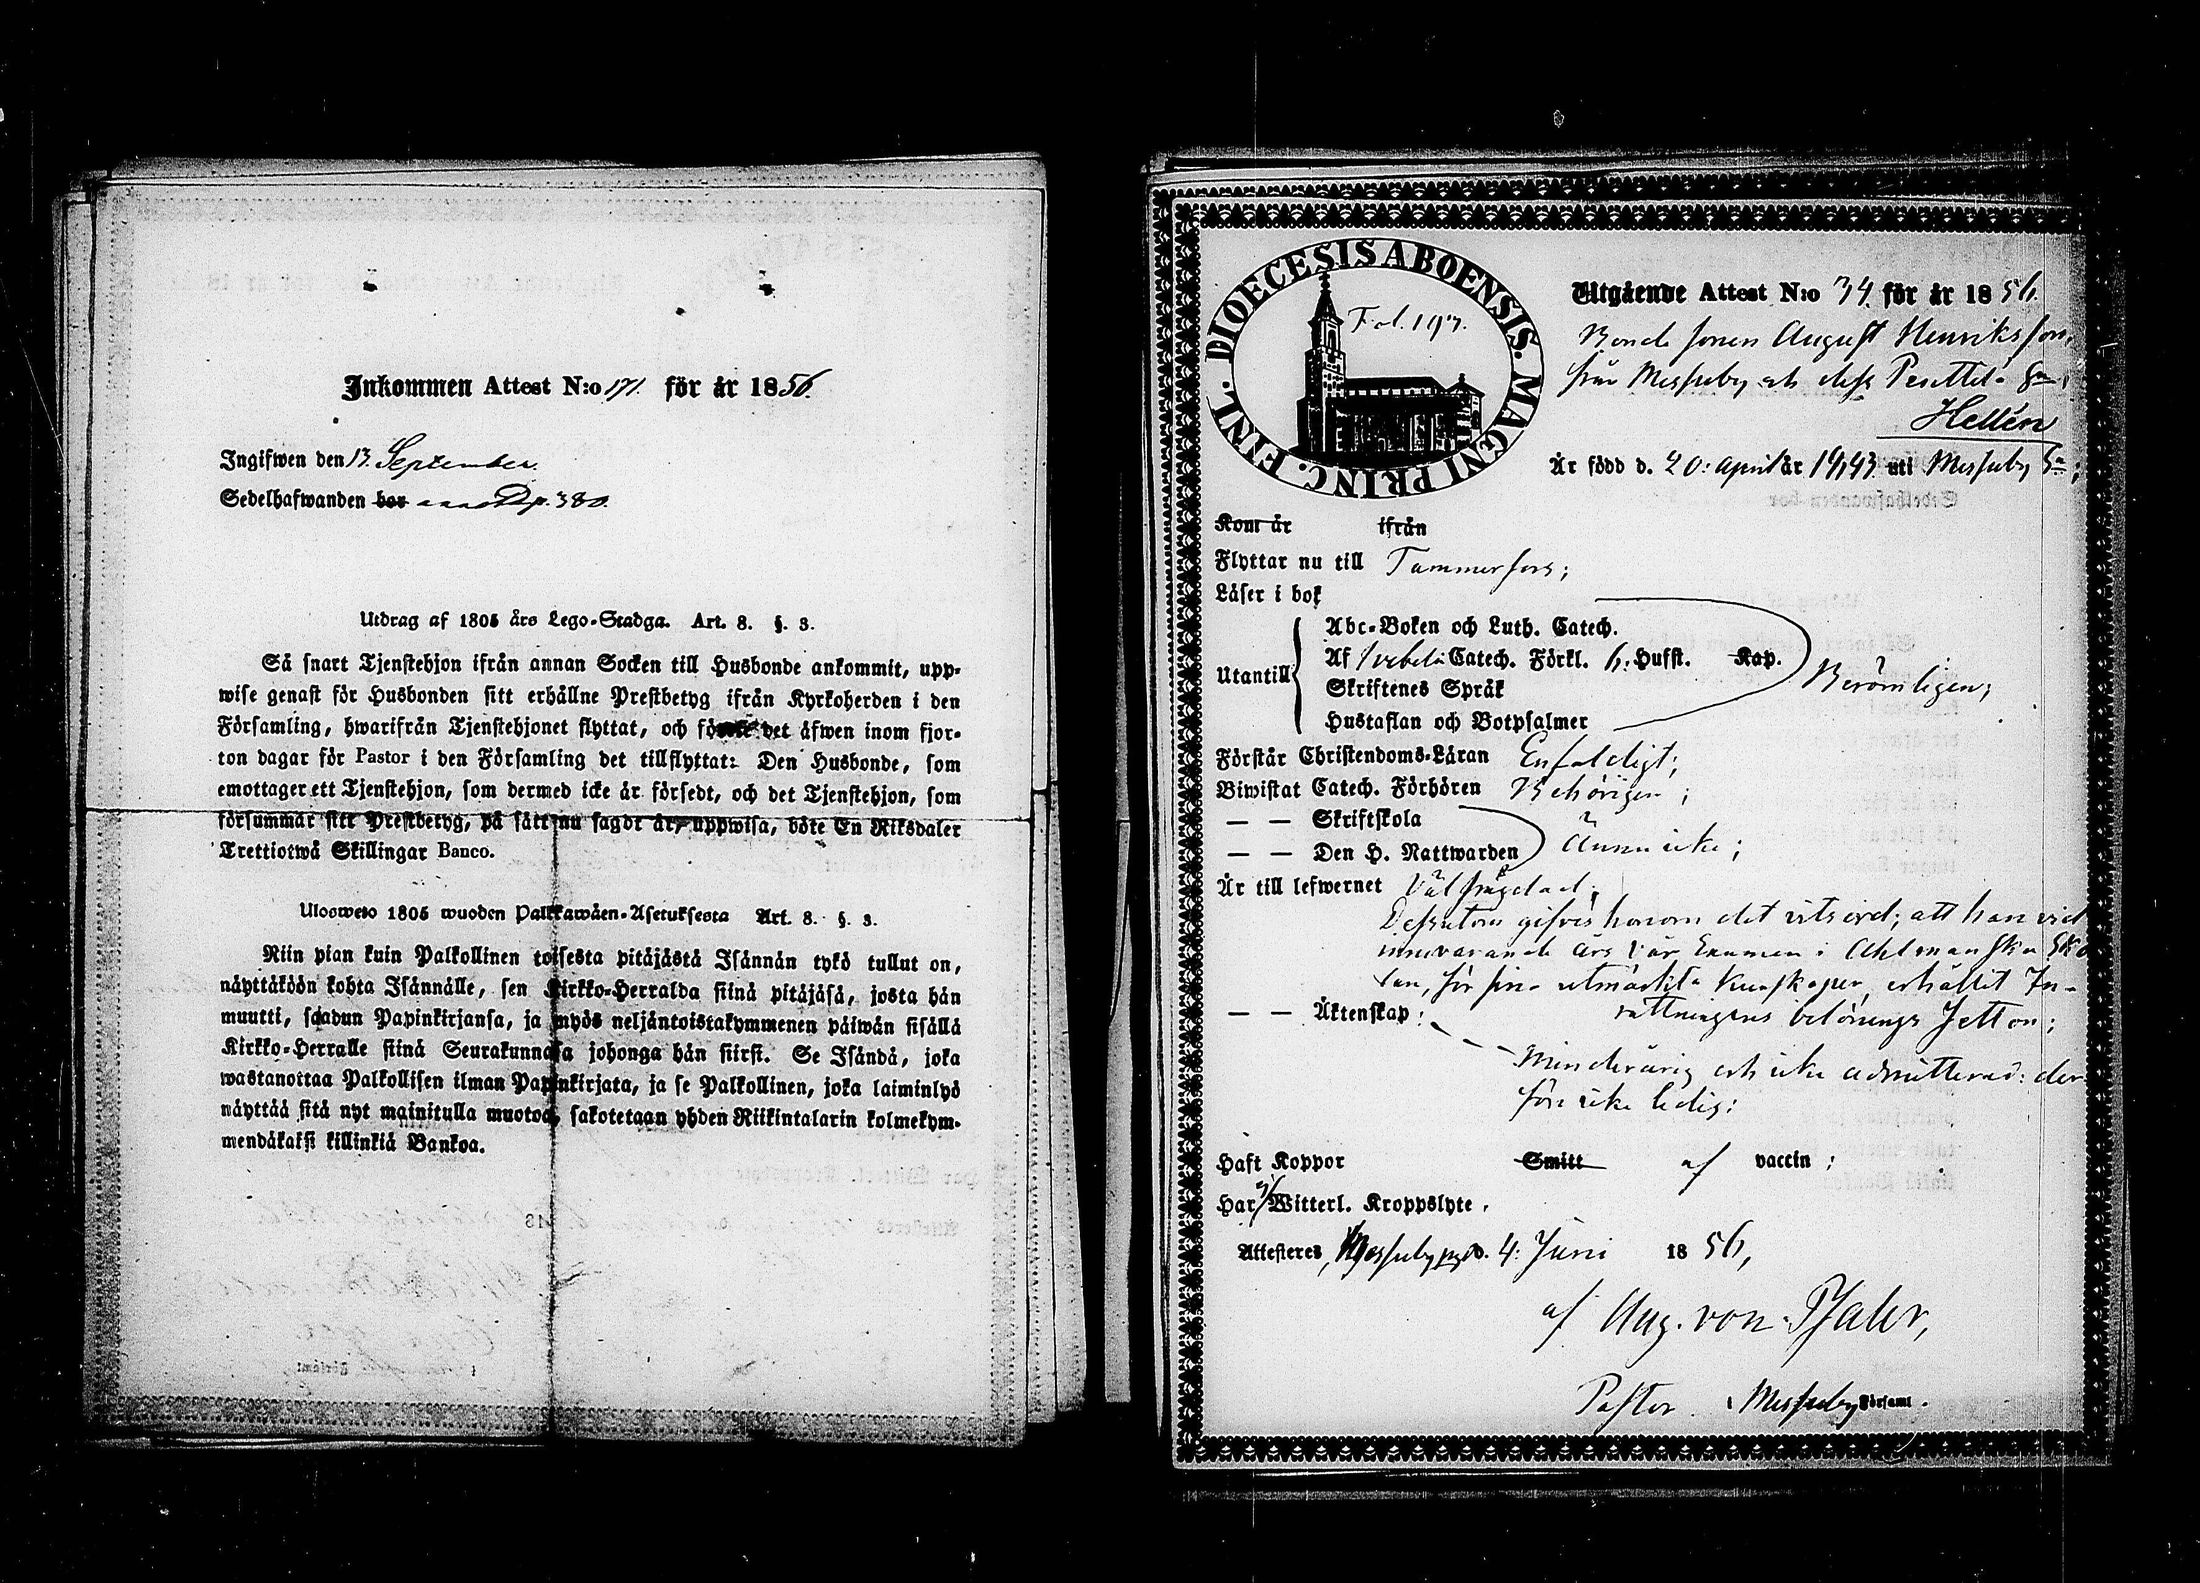 Inkommen Attest N:o 171. för år 1856.
Ingifwen den 13 September
Sedelhafwanden bor Pp. 380.
Utdrag af 1805 års Lego-Stadga. Art. 8. §. 3.
Så snart Tjenstehjon ifrån annan Socken till Husbonde ankommit, upp-
wise genast för Husbonden sitt erhållne Prestbetyg ifrån Kyrkoherden i den
Församling, hwarifrån Tjenstehjonet flyttat, och det äfwen inom fjor-
ton dagar för Pastor i den Församling det tillflyttat: Den Husbonde, som
emottager ett Tjenstehjon, som dermed icke är försedt, och det Tjenstehjon, som
försummar sitt Prestbetyg, på sätt nu sagdt är, uppwisa, böte En Riksdaler
Trettiotwå Skillingar Banco.
Ulosweto 1805 wuoden Palkkawäen-Asetuksesta Art. 8. §. 3.
Niin pian kuin Palkollinen toisesta pitäjästä Isännän tykö tullut on,
näyttäköön kohta Isännälle, sen Kirkko-Herralda siinä pitäjäsä, josta hän
muutti, saadun Papinkirjansa, ja myös neljäntoistakymmenen päiwän sisällä
Kirkko-Herralle siinä Seurakunnasa johonga hän siirsi. Se Isändä, joka
wastanottaa Palkollisen ilman Papinkirjata, ja se Palkollinen, joka laiminlyö
näyttää sitä nyt mainitulla muotoa, sakotetaan yhden Riikintalarin kolmekym-
mendäkaksi killinkiä Bankoa.
DIOECESIS ABOENSIS. MAGNI PRINC. FINL.
Fol. 193.
Utgående Attest N:o 34. för år 1856.
Bonde sonen August Henriksson,
från Messuby och dess Pesittelä Gm,
Hellén
Är född d. 20: April är 1843 uti Messuby Sn;
Kom år ifrån
Flyttar nu till Tammerfors;
Läser i bok
Utantill
Abc-Boken och Luth. Catech.
Af Svebelii Catech. Förkl. h: Hufst. Kap.
Skriftenes Språk
Hustaflan och Botpsalmer
Berömligen;
Förstår Christendoms-Läran Enfaldigt;
Biwistat Catech. Förhören Behörigen;
— — Skriftskola
— — Den H. Nattwarden Ännu icke;
Är till lefwernet Välfrägdad;
Dessutom gifves honom det vitsord; att han vid
innevarande års Vår Examen i Ahlmanska Sko
lan, för sina utmärkta kunskaper, erhållit In-
rättningens belönings Jetton;
— — Äktenskap: Minderårig och icke admitterad: der
för icke ledig:
Haft Koppor Smitt af vaccin;
Har ej Witterl. Kroppslyte.
Attesteres, Messuby pgd. 4: Juni 1856,
af Aug. von Pfaler,
Pastor i Messuby Församl.